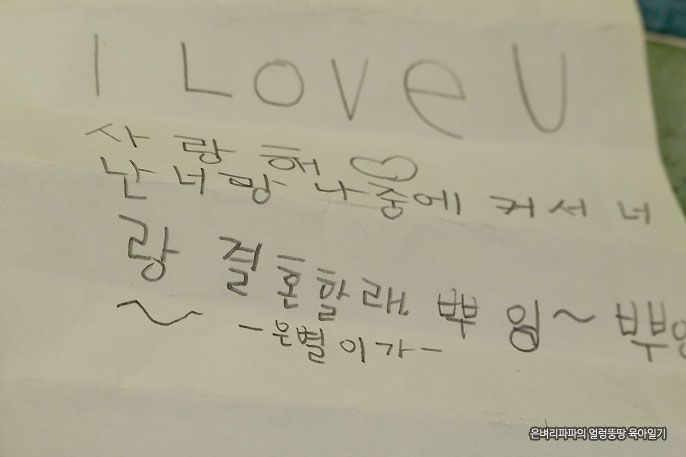 I LOVE U
사랑해♡
난 너랑 나중에 커서 너
랑 결혼할래. 뿌잉~ 뿌잉
~
-은별이가-
은벼리파파의 얼렁뚱땅 육아일기